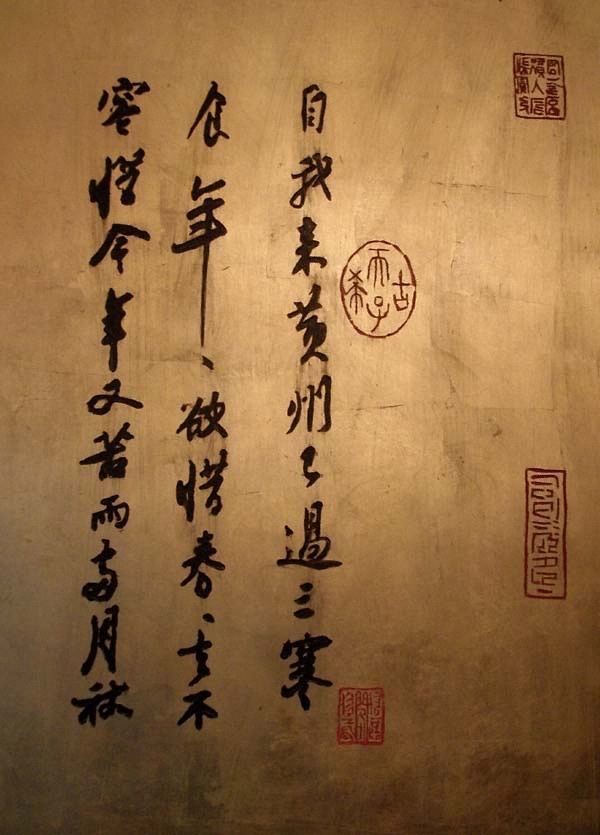 古希天子
自我来黄州已過三寒
食年、欲惜春、去不
容惜今年又苦雨兩月秋